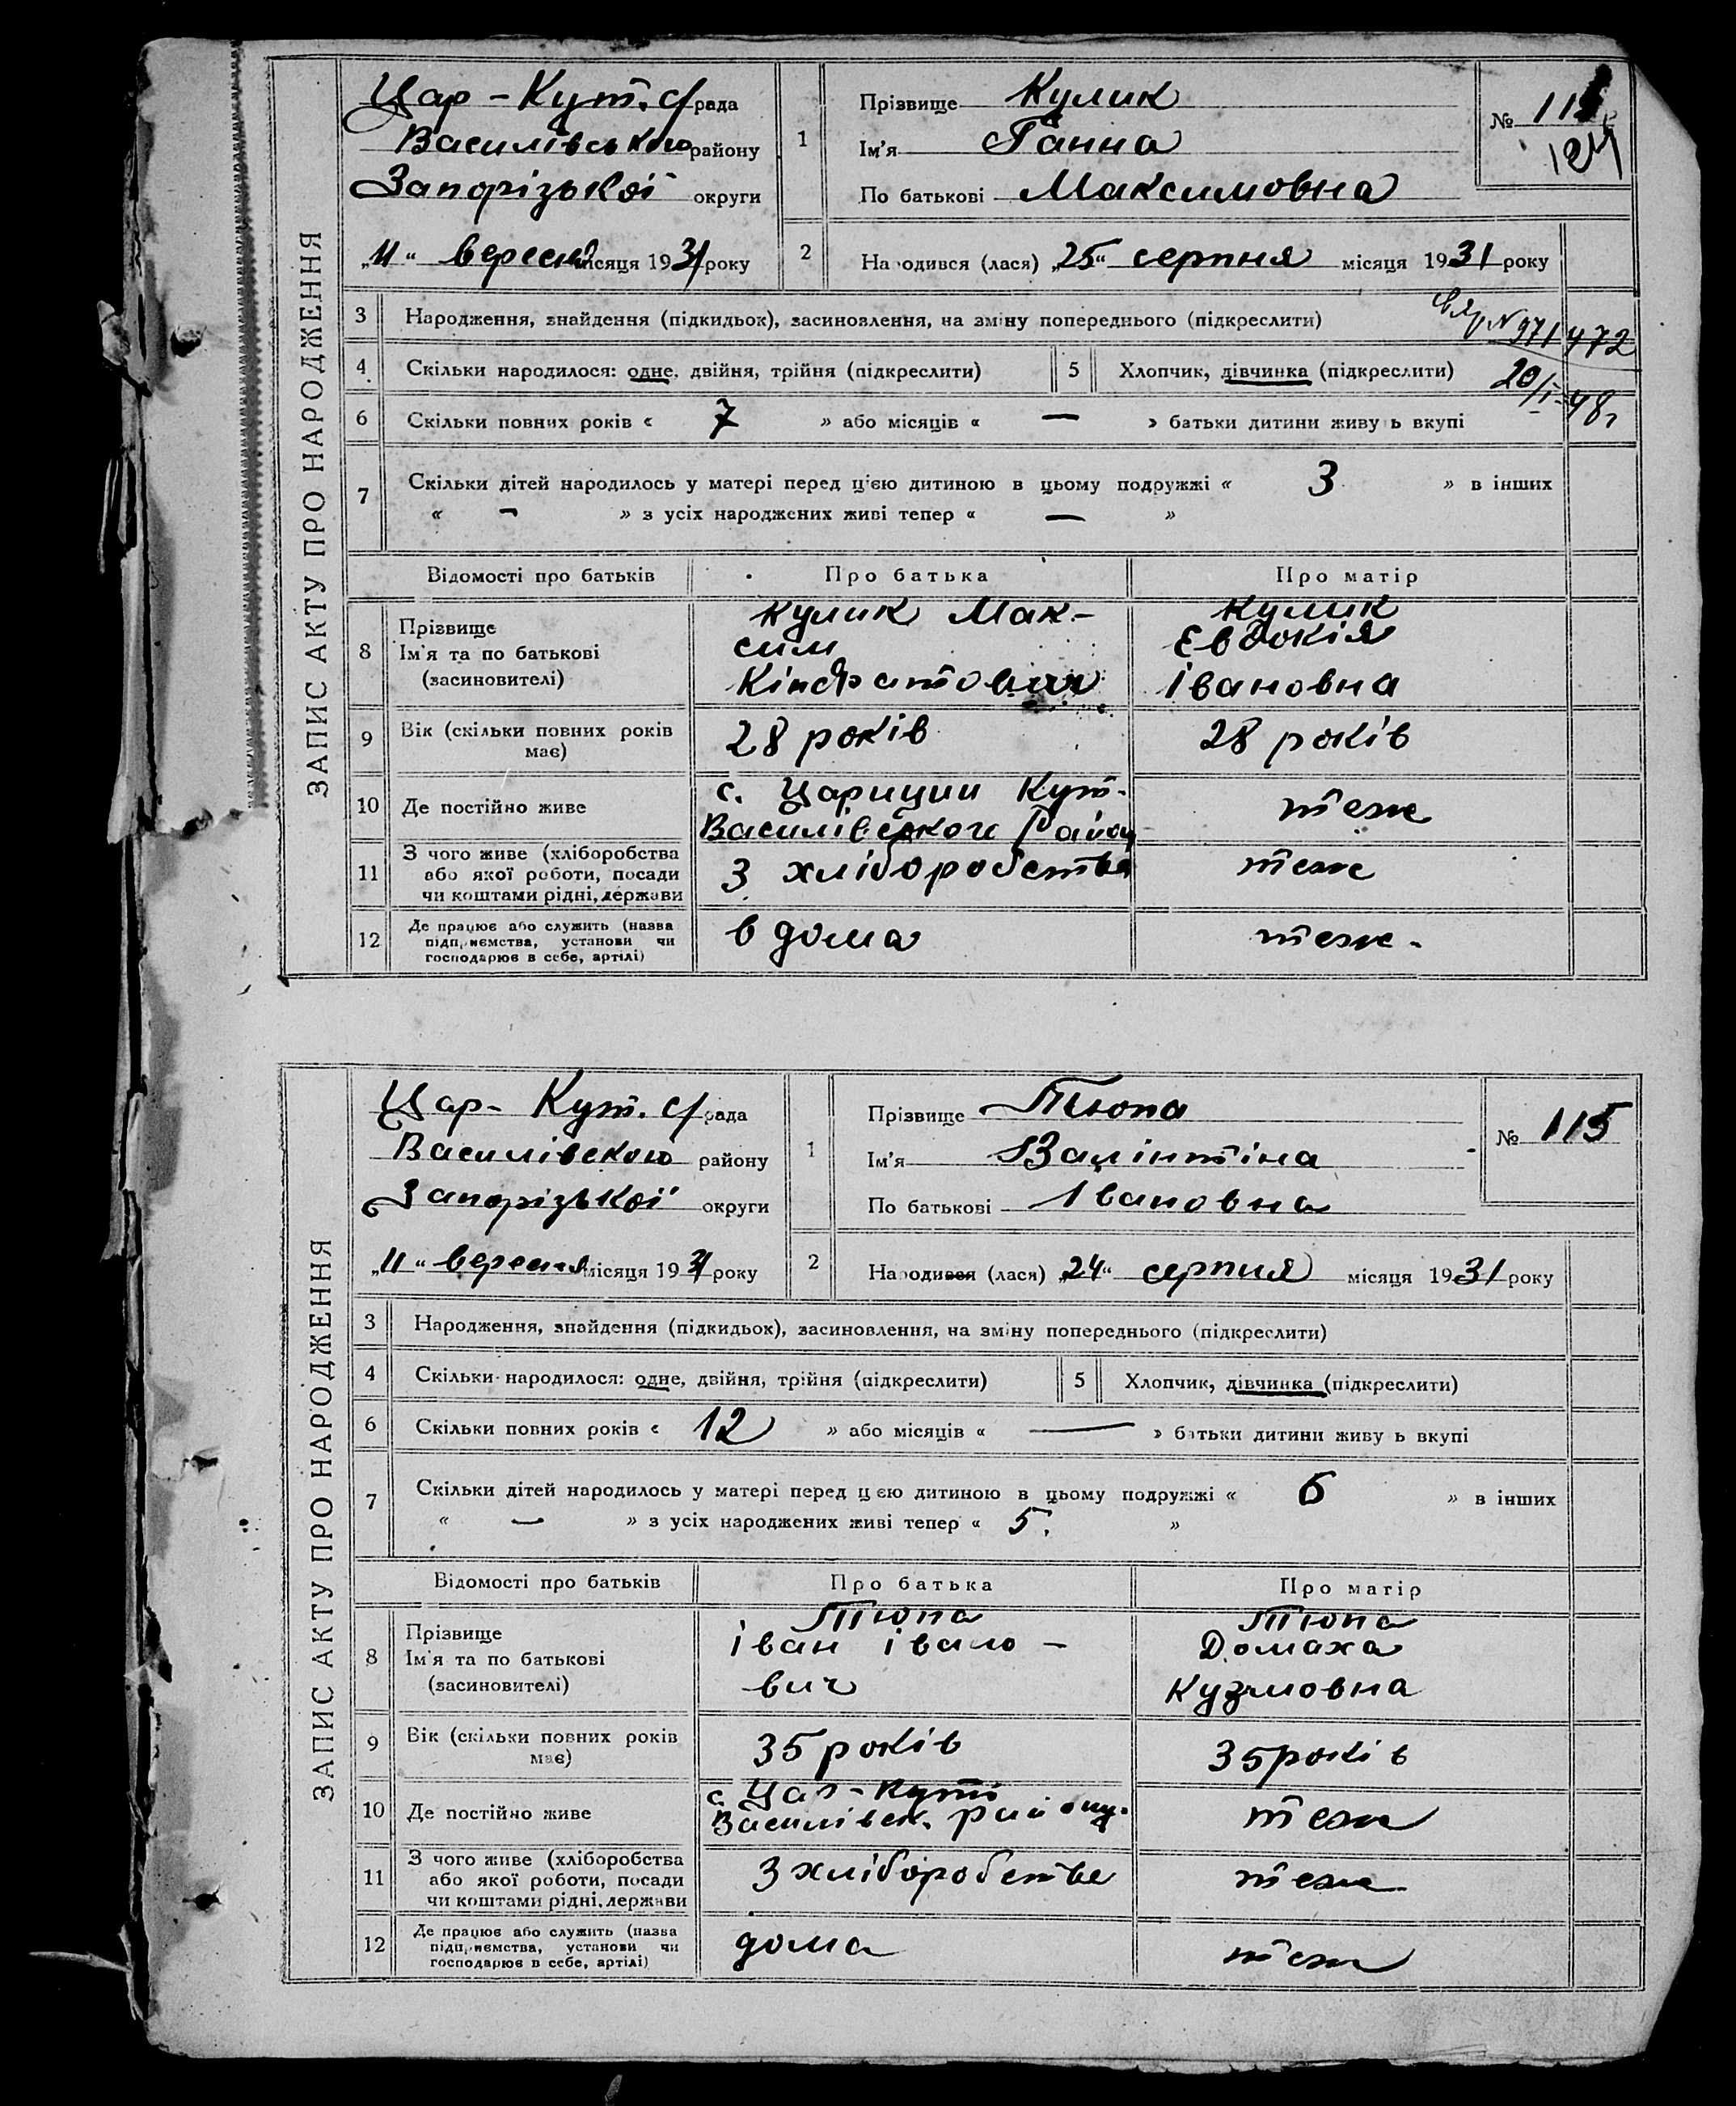 ЗАПИС АКТУ ПРО НАРОДЖЕННЯ
Цар-Кут. с/рада
Василівського району
Запорізької округи
„11“ вересня місяця 1931 року
1
Прізвище Кулик
Ім'я Ганна
По батькові Максимовна
№ 11
124
2
Народився (лася) „25“ серпня місяця 1931 року
3 Народження, знайдення (підкидьок), засиновлення, на зміну попереднього (підкреслити)
N 971472
4 Скільки народилося: одне, двійня, трійня (підкреслити) 5 Хлопчик, дівчинка (підкреслити)
20/I-48г
6 Скільки повних років « 7 » або місяців « — » батьки дитини живуть вкупі
7 Скільки дітей народилось у матері перед цією дитиною в цьому подружжі « 3 » в інших
« - » з усіх народжених живі тепер « — »
Відомості про батьків Про батька Про матір
8 Прізвище
Ім'я та по батькові
(засиновителі)
Кулик Мак-
сим
Кіндратович
Кулик
Євдокія
Івановна
9 Вік (скільки повних років
має)
28 років
28 років
10 Де постійно живе
с. Царицин Кут-
Василівського Району
теж
11 З чого живе (хліборобства
або якої роботи, посади
чи коштами рідні, держави
З хліборобства
теж
12 Де працює або служить (назва
підприємства, установи чи
господарює в себе, артілі)
в дома
теж.
ЗАПИС АКТУ ПРО НАРОДЖЕННЯ
Цар-Кут. с/рада
Василівского району
Запорізької округи
„11“ вересня місяця 1931 року
1
Прізвище Тюпа
Ім'я Валінтіна
По батькові Івановна
№ 115
2
Народився (лася) „24“ серпня місяця 1931 року
3 Народження, знайдення (підкидьок), засиновлення, на зміну попереднього (підкреслити)
4 Скільки народилося: одне, двійня, трійня (підкреслити) 5 Хлопчик, дівчинка (підкреслити)
6 Скільки повних років « 12 » або місяців « — » батьки дитини живуть вкупі
7 Скільки дітей народилось у матері перед цією дитиною в цьому подружжі « 6 » в інших
« — » з усіх народжених живі тепер « 5. »
Відомості про батьків Про батька Про матір
8 Прізвище
Ім'я та по батькові
(засиновителі)
Тюпа
Іван Івано-
вич
Тюпа
Домаха
Кузмовна
9 Вік (скільки повних років
має)
35 років
35 років
10 Де постійно живе
с. Цар-Кут
Василівск. району.
теж
11 З чого живе (хліборобства
або якої роботи, посади
чи коштами рідні, держави
З хліборобства
теж
12 Де працює або служить (назва
підприємства, установи чи
господарює в себе, артілі)
дома
теж